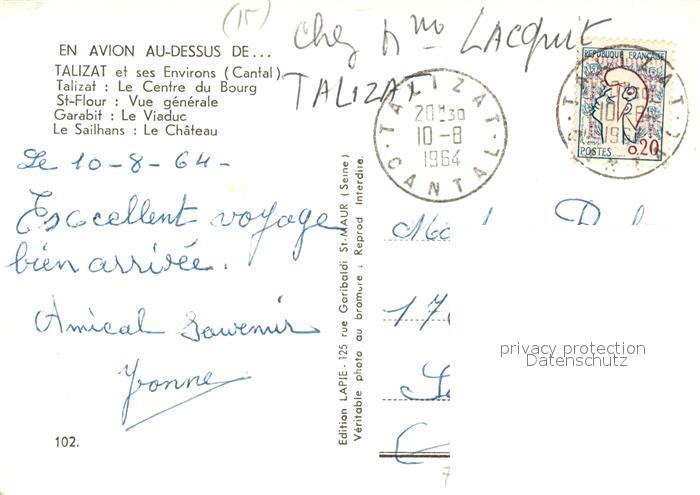 (15)
chez Mme LACQUIT
TALIZAT
EN AVION AU-DESSUS DE...
TALIZAT et ses Environs (Cantal)
Talizat : Le Centre du Bourg
St-Flour : Vue générale
Garabit : Le Viaduc
Le Sailhans : Le Château
TALIZAT
20H30
10-8
1964
CANTAL
REPUBLIQUE FRANÇAISE
POSTES
0,20
Le 10-8-64-
Excellent voyage
bien arrivée.
Amical Souvenir
Yvonne
102.
Edition LAPIE - 125 rue Garibaldi St-MAUR (Seine)
Véritable photo au bromure : Reprod Interdite.
privacy protection
Datenschutz